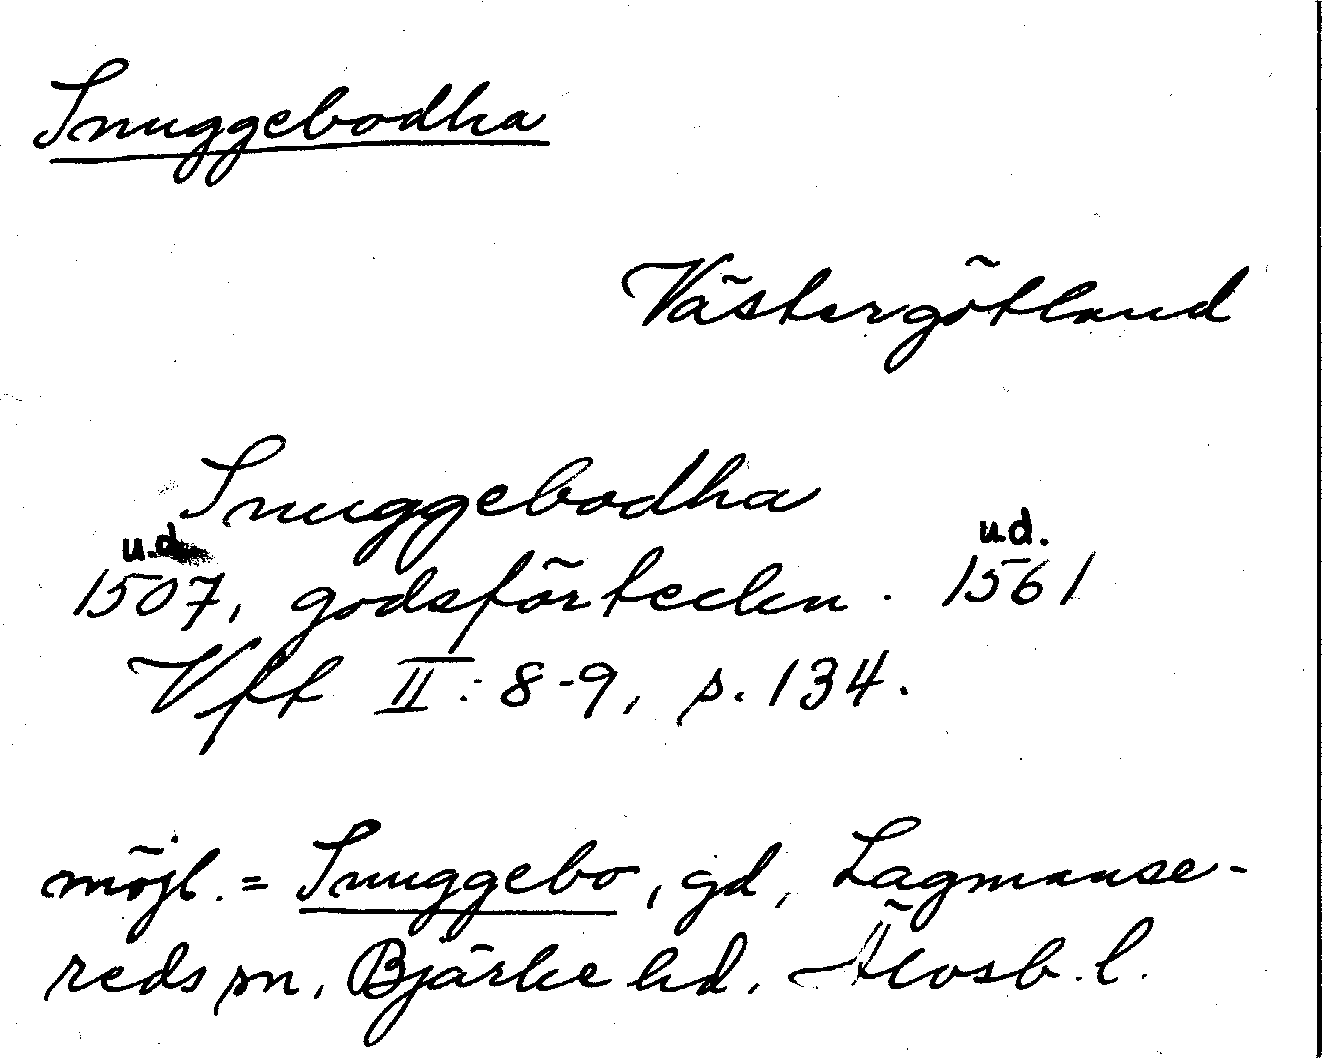 Snuggebodha
Västergötland
Snuggebodha
u.d. u.d.
1507, godsförteckn. 1561
Vft II: 8-9, s. 134.
möjl. = Snuggebo, gd, Lagmanse-
reds sn, Bjärke hd. Älvsb. l.